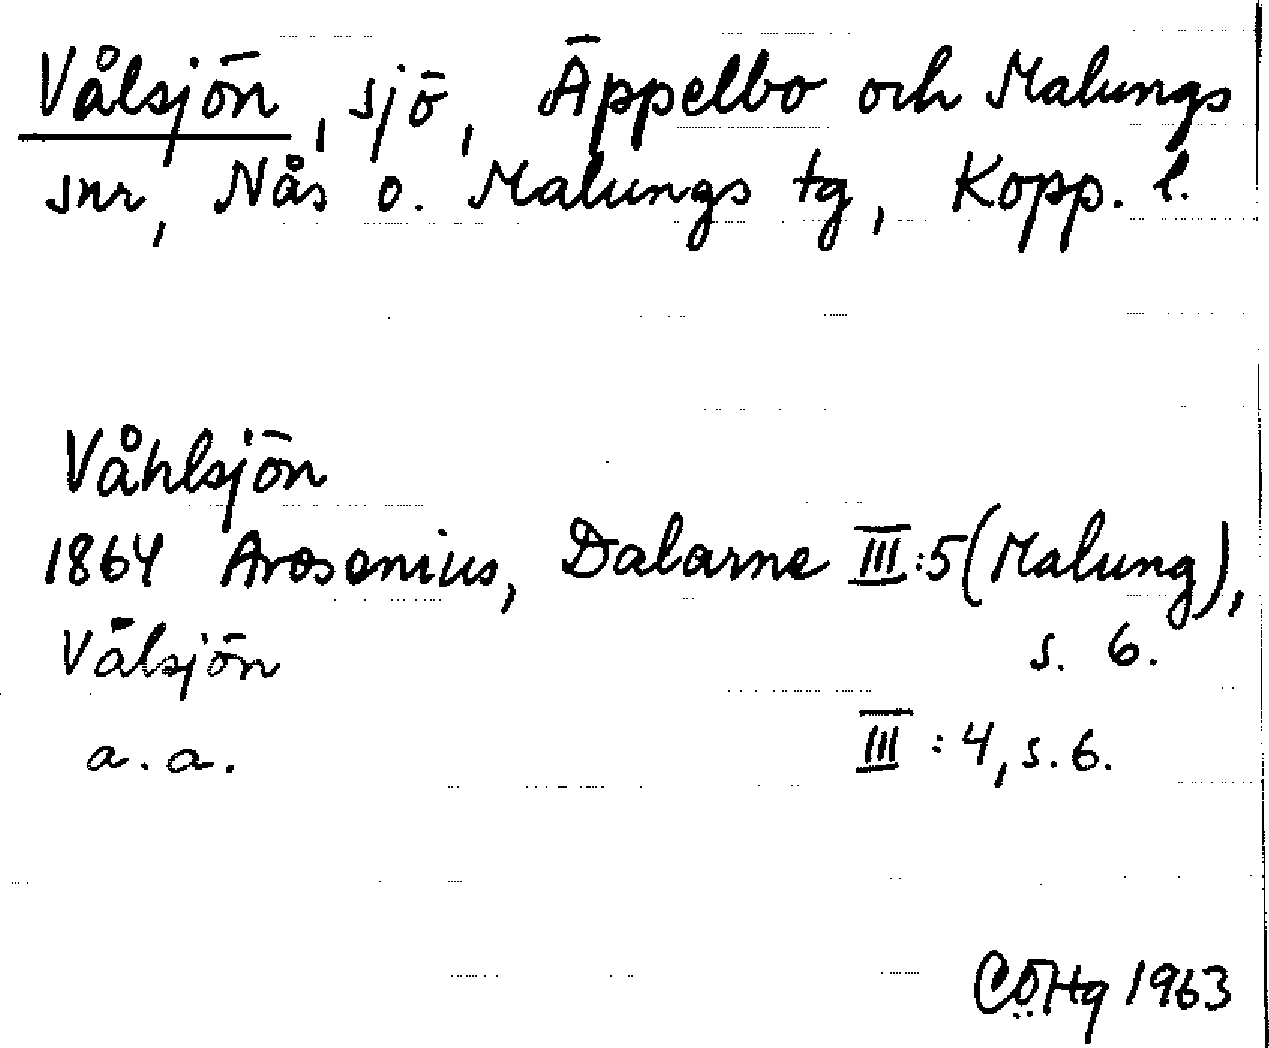 Vålsjön, sjö, Äppelbo och Malungs
snr, Nås o. Malungs tg, Kopp. l.
Våhlsjön
1864 Arosenius, Dalarne III:5 (Malung),
s. 6.
Välsjön
a. a. III:4, s. 6.
CÖHg 1963